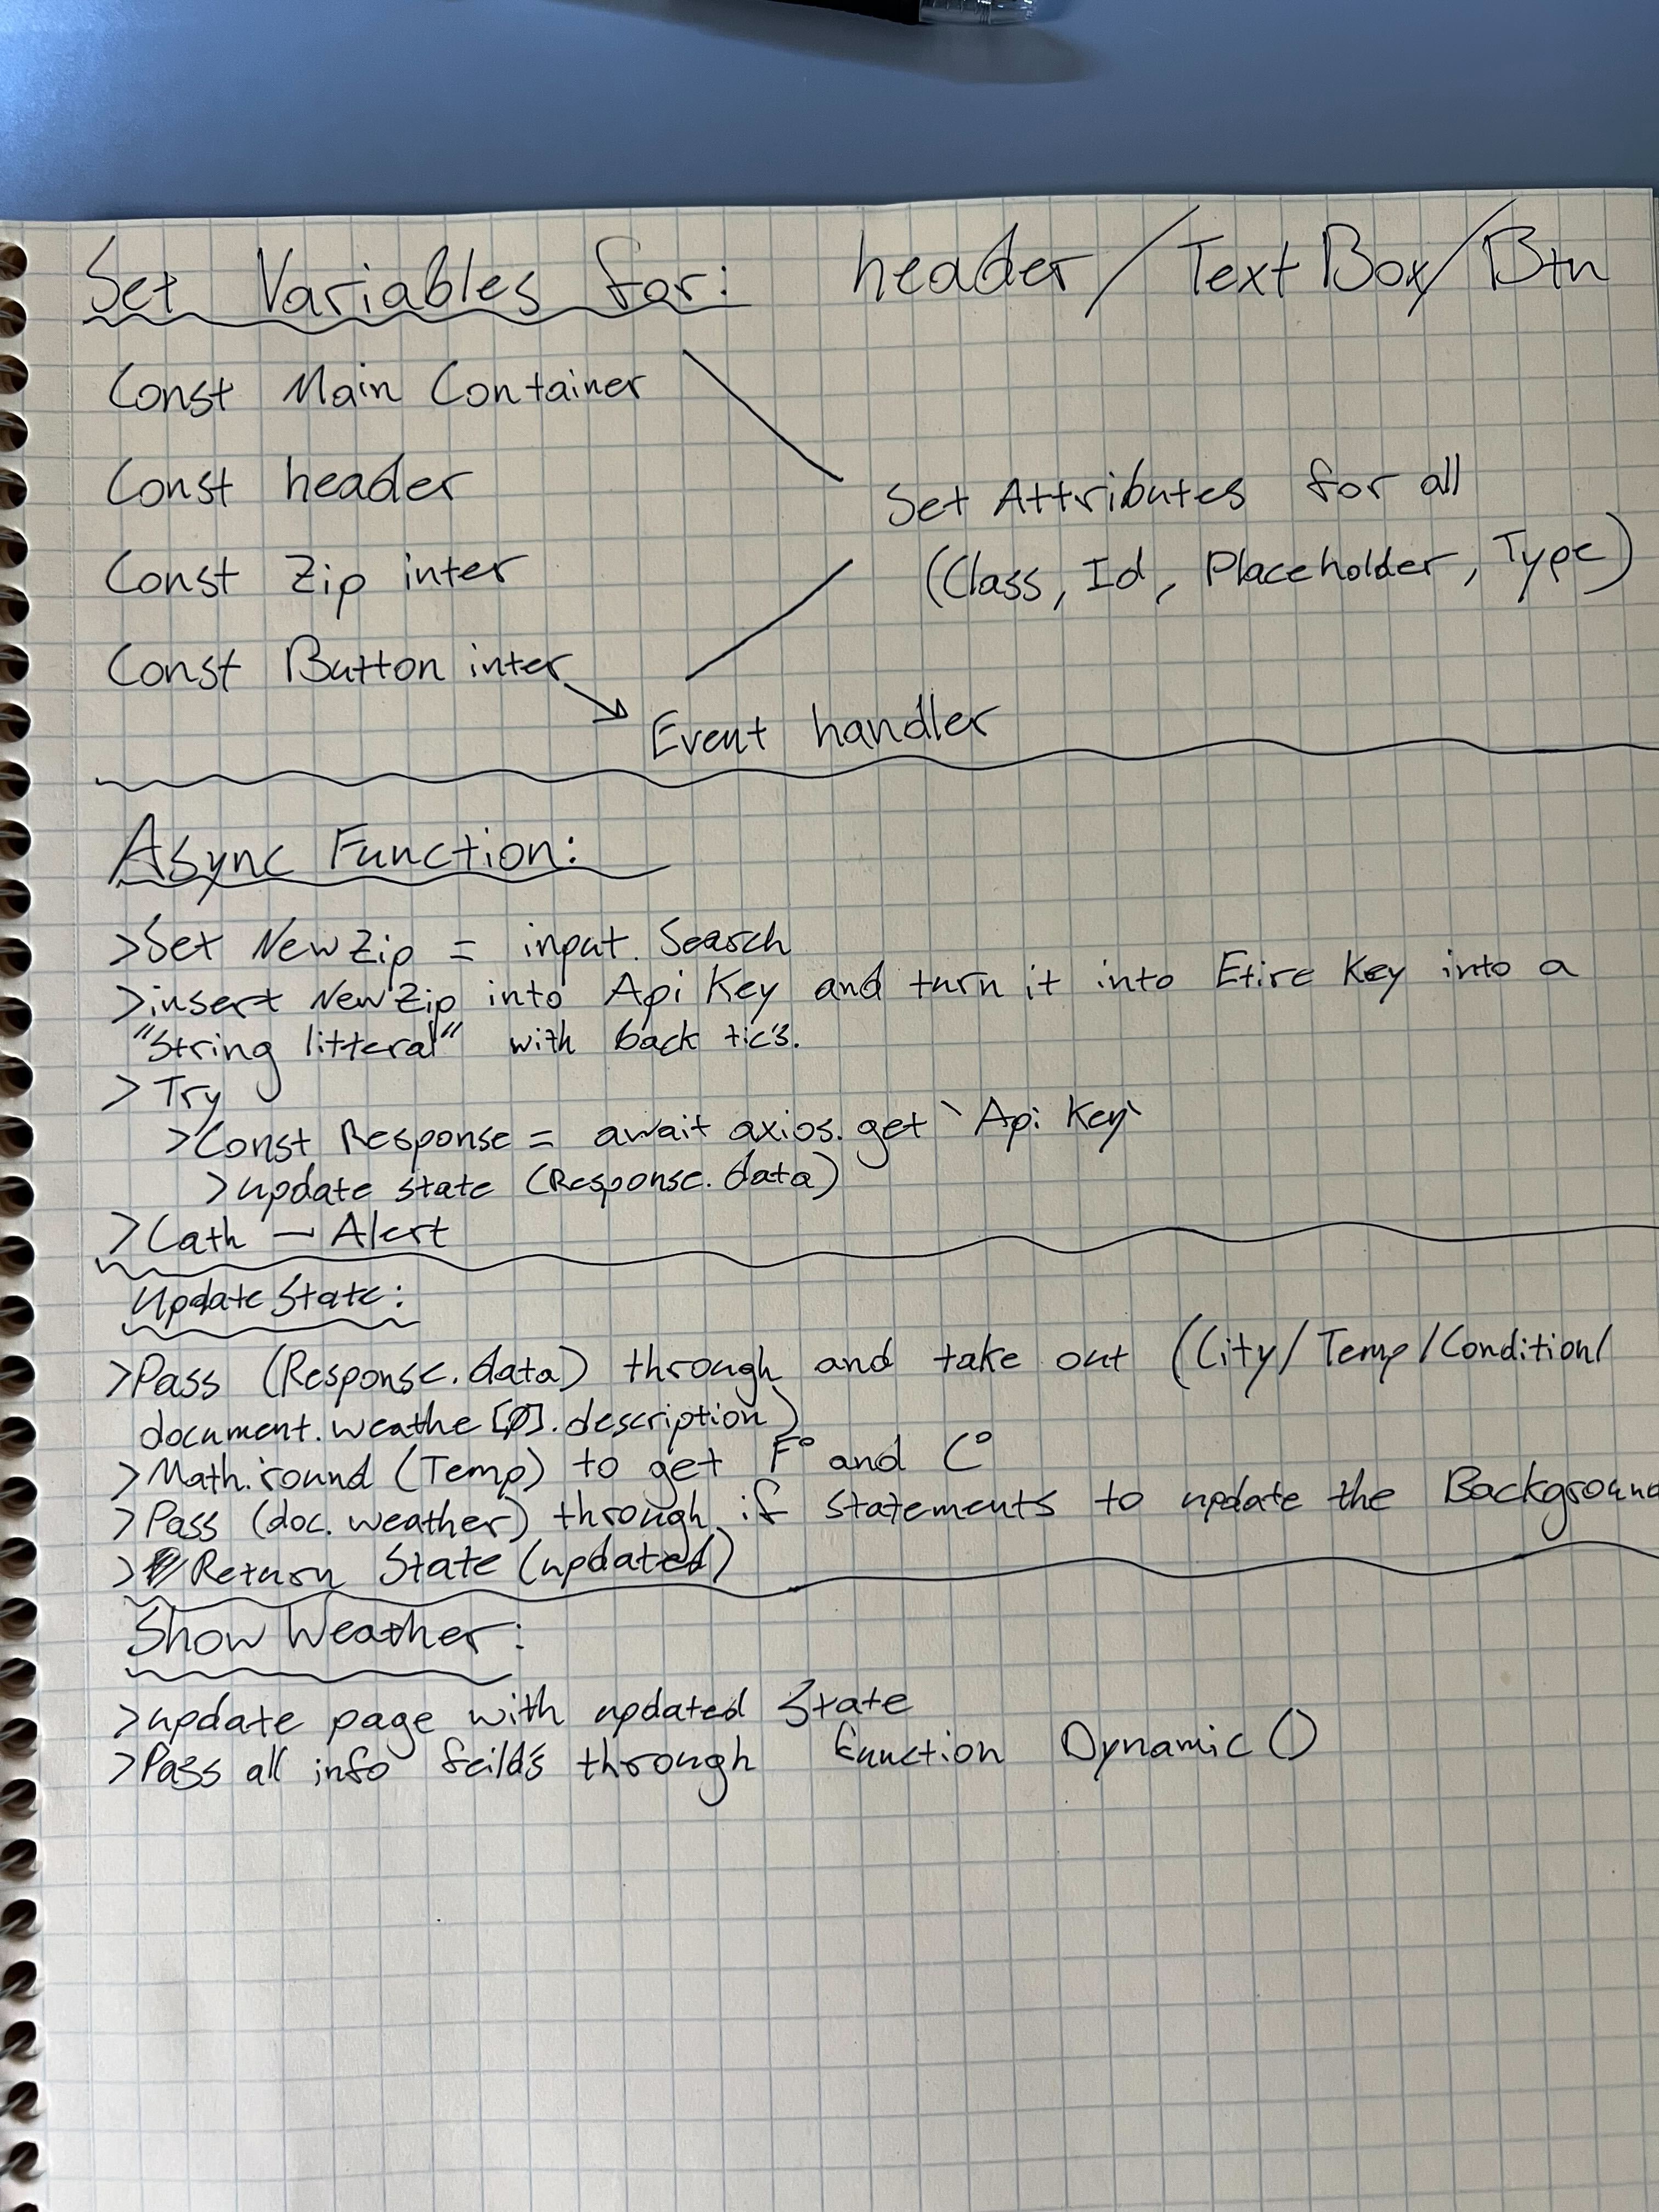 Set Variables for: header/Text Box/Btn
Const Main Container
Const header
Set Attributes for all
Const Zip inter
(Class, Id, Placeholder, Type)
Const Button inter
Event handler
Async Function:
>Set NewZip = input.Search
>insert NewZip into Api Key and turn it into Etire Key into a
"String litteral" with back tic's.
> Try
>Const Response = await axios.get `Api Key`
>update state (Response.data)
>Cath — Alert
Update State:
>Pass (Response.data) through and take out (City/Temp/Condition/
document.weathe[0].description)
>Math.round (Temp) to get F° and C°
>Pass (doc.weather) through if statements to update the Background
>Return State (updated)
Show Weather:
>update page with updated State
>Pass all info feild's through function Dynamic()